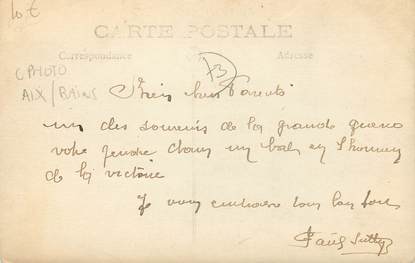 10 €
CARTE POSTALE
Correspondance
Adresse
C PHOTO
AIX/BAINS
73
Bien chers Parents
un des souvenirs de la grande guerre
votre gendre dans un bal en l'honneur
de la victoire
Je vous embrasse tous bien fort
Paul